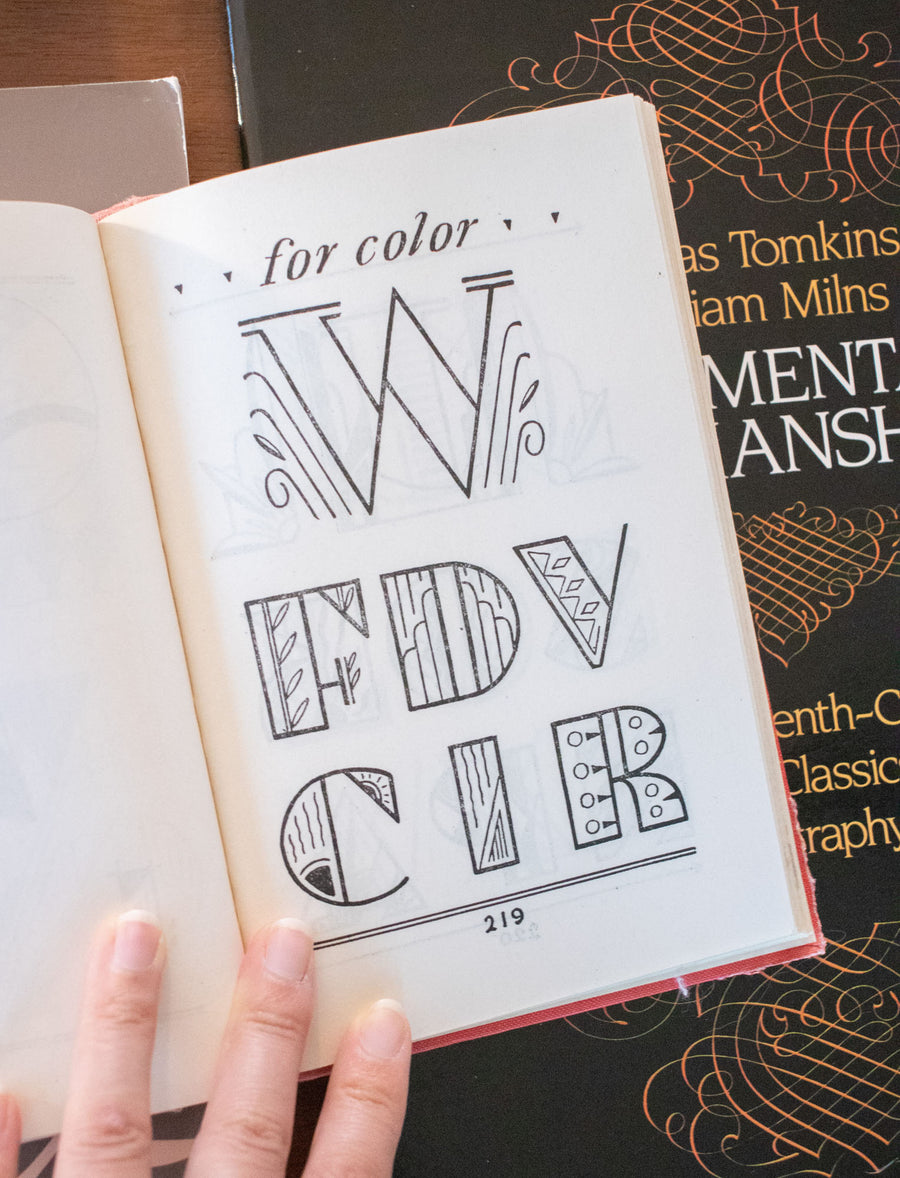 for color
W
FDV
CIR
219
220
as Tomkins
iam Milns
MENTA
MANSH
enth-C
Classics
raphy